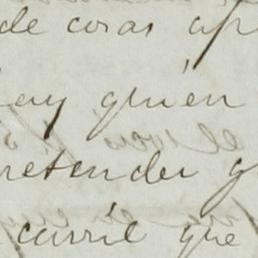 de cosas apr
Hay quien
retender q
carril que